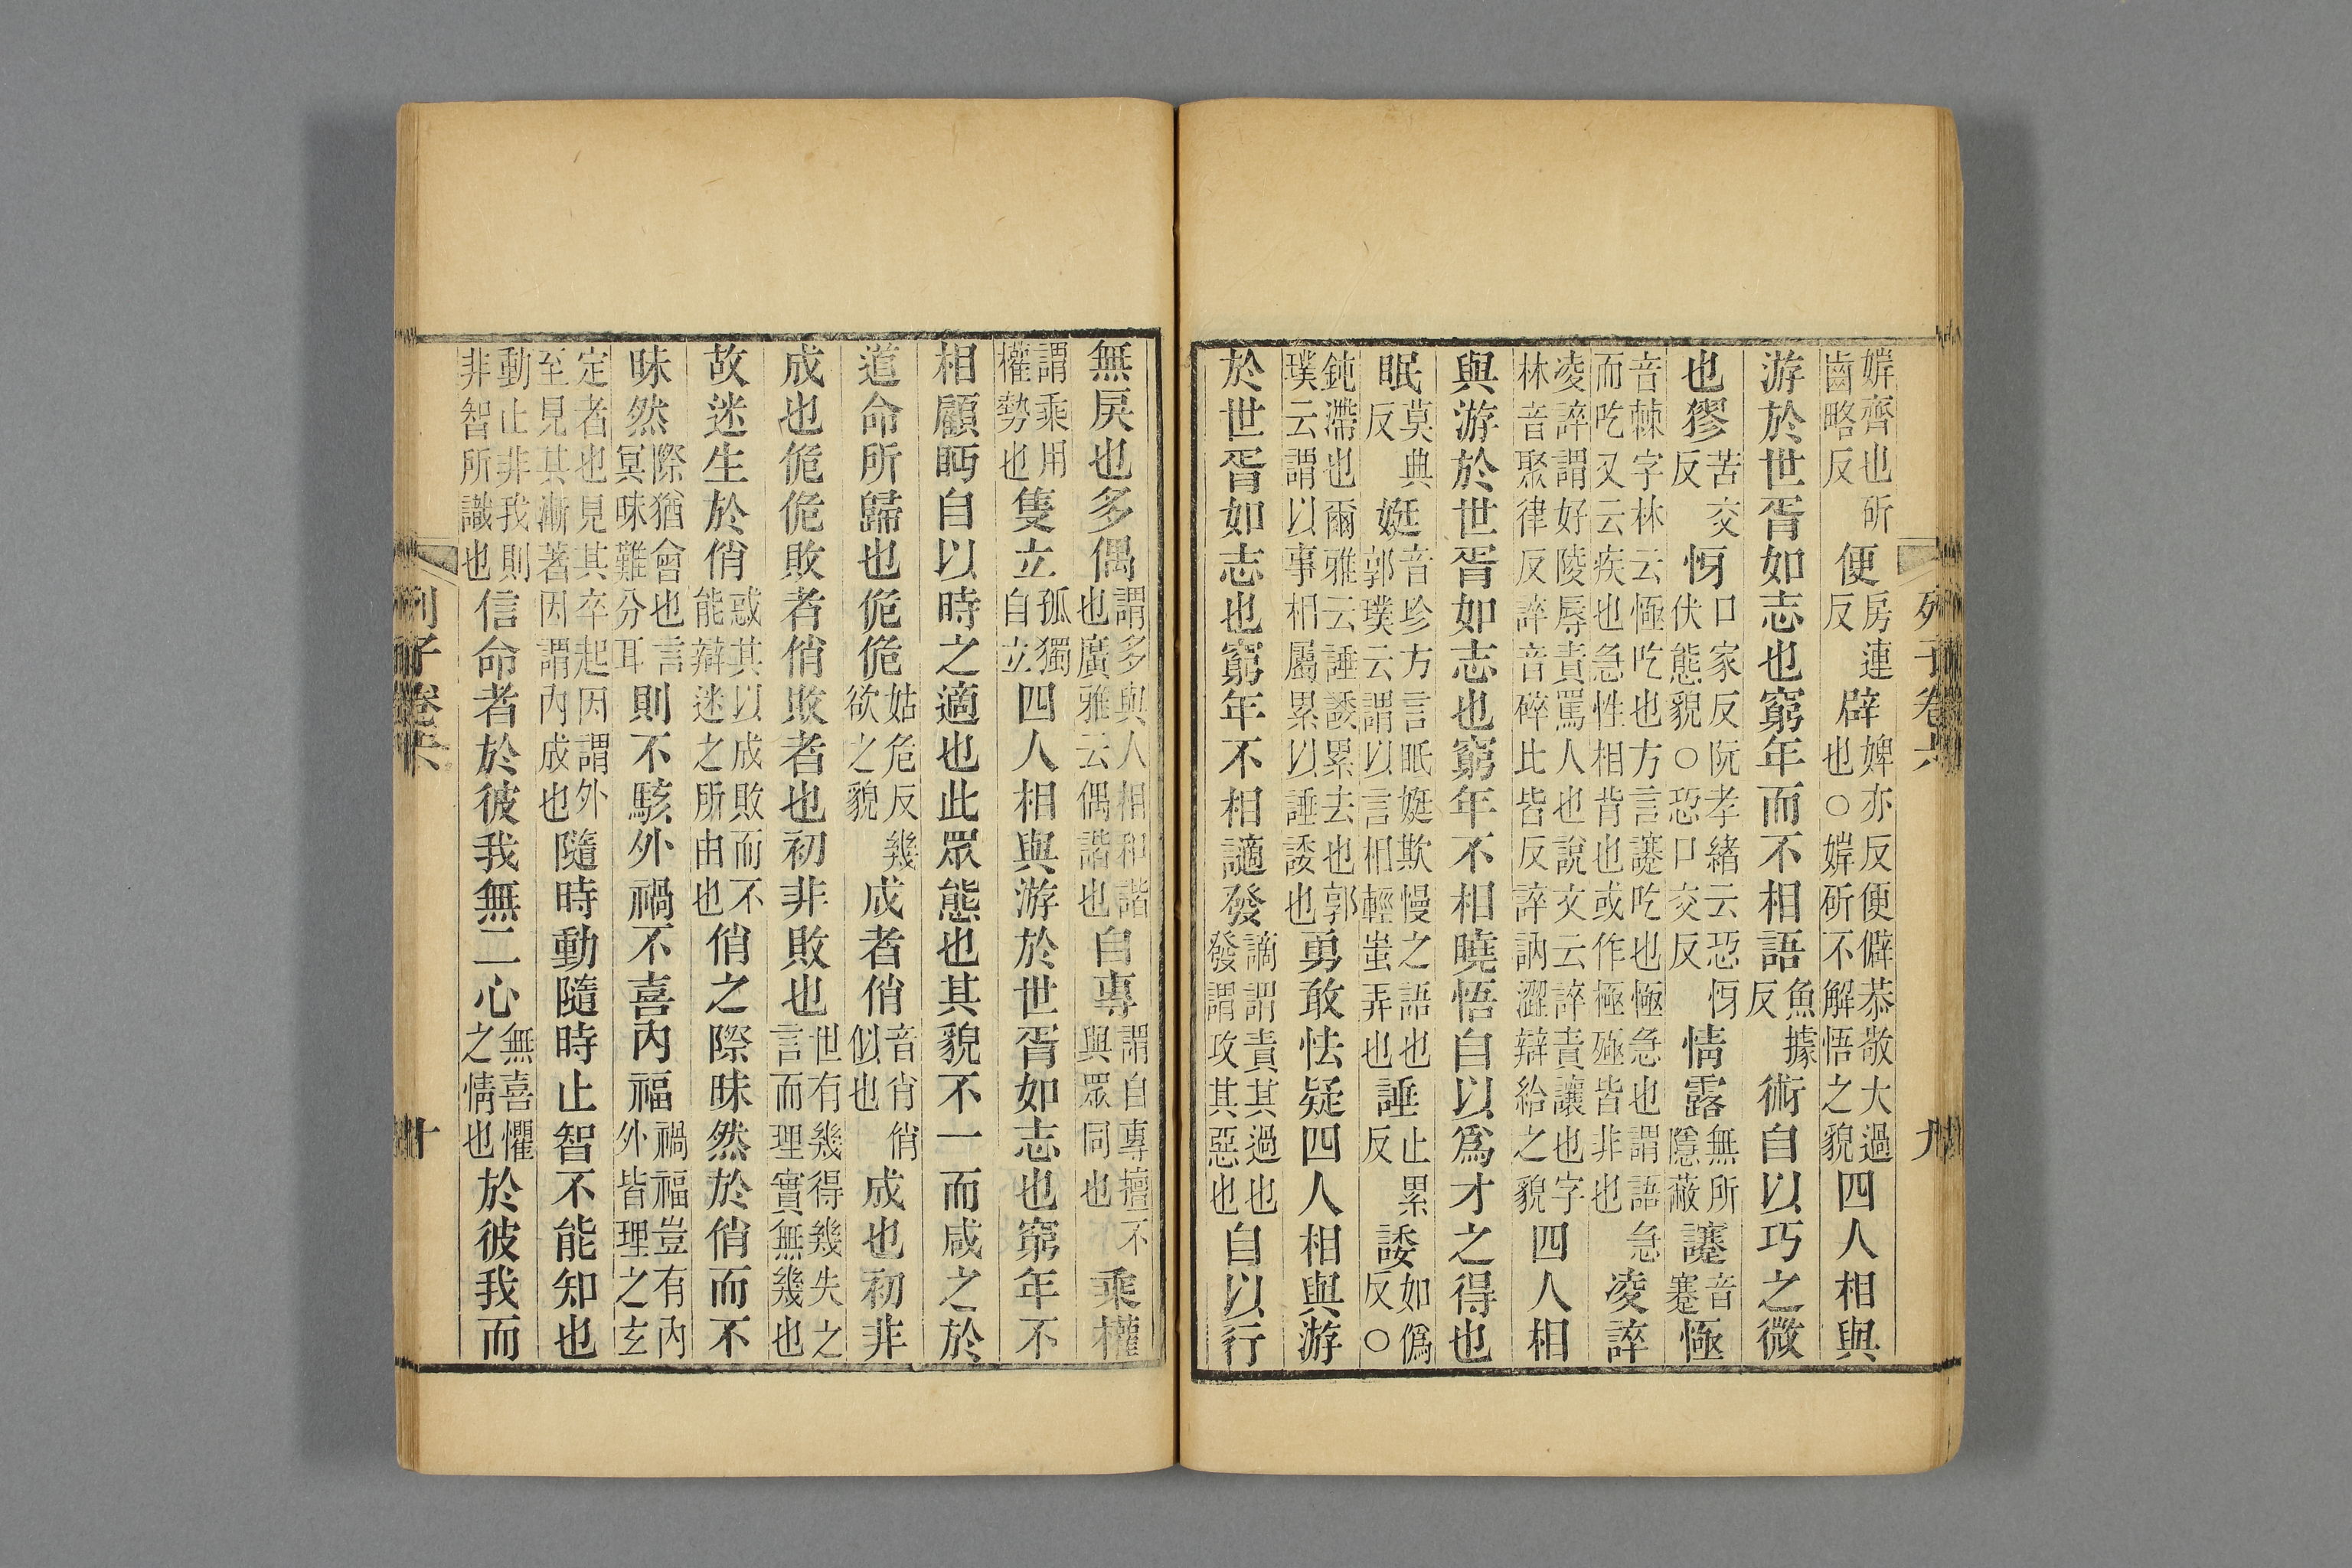 列子卷六 九
婩齊也斫齒略反便房連反辟婢亦反便僻恭敬大過也○婩斫不解悟之貌四人相與
游於世胥如志也窮年而不相語魚據反術自以巧之微
也㺒苦交反㤉口家反阮孝緒云恐㤉伏態貌○恐口交反情露無所隱蔽𧮈音蹇㥛
音棘字林云㥛吃也方言𧮈吃也㥛急也謂語急而吃又云疾也急性相背也或作極殛皆非也凌誶
凌誶謂好陵辱責罵人也說文云誶責讓也字林音聚律反誶音碎此皆反誶訥澀辯給之貌四人相
與游於世胥如志也窮年不相曉悟自以爲才之得也
眠莫典反娗音殄方言眠娗欺慢之語也郭璞云謂以言相輕蚩弄也諈止累反諉如僞反○
鈍滯也爾雅云諈諉累去也郭璞云謂以事相屬累以諈諉也勇敢怯疑四人相與游
於世胥如志也窮年不相讁發謫謂責其過也發謂攻其惡也自以行
無戾也多偶謂多與人相和諧也廣雅云偶諧也自專謂自專擅不與眾同也乘權
謂乘用權勢也隻立孤獨自立四人相與游於世胥如志也窮年不
相顧眄自以時之適也此眾態也其貌不一而咸之於
道命所歸也佹佹姑危反幾欲之貌成者俏音肖俏似也成也初非
成也佹佹敗者俏敗者也初非敗也世有幾得幾失之言而理實無幾也
故迷生於俏惑其以成敗而不能辯迷之所由也俏之際昧然於俏而不
昧然際猶會也言冥昧難分耳則不駭外禍不喜內福禍福豈有內外皆理之玄
定者也見其卒起因謂外至見其漸著因謂內成也隨時動隨時止智不能知也
動止非我則非智所識也信命者於彼我無二心無喜懼之情也於彼我而
列子卷六 十